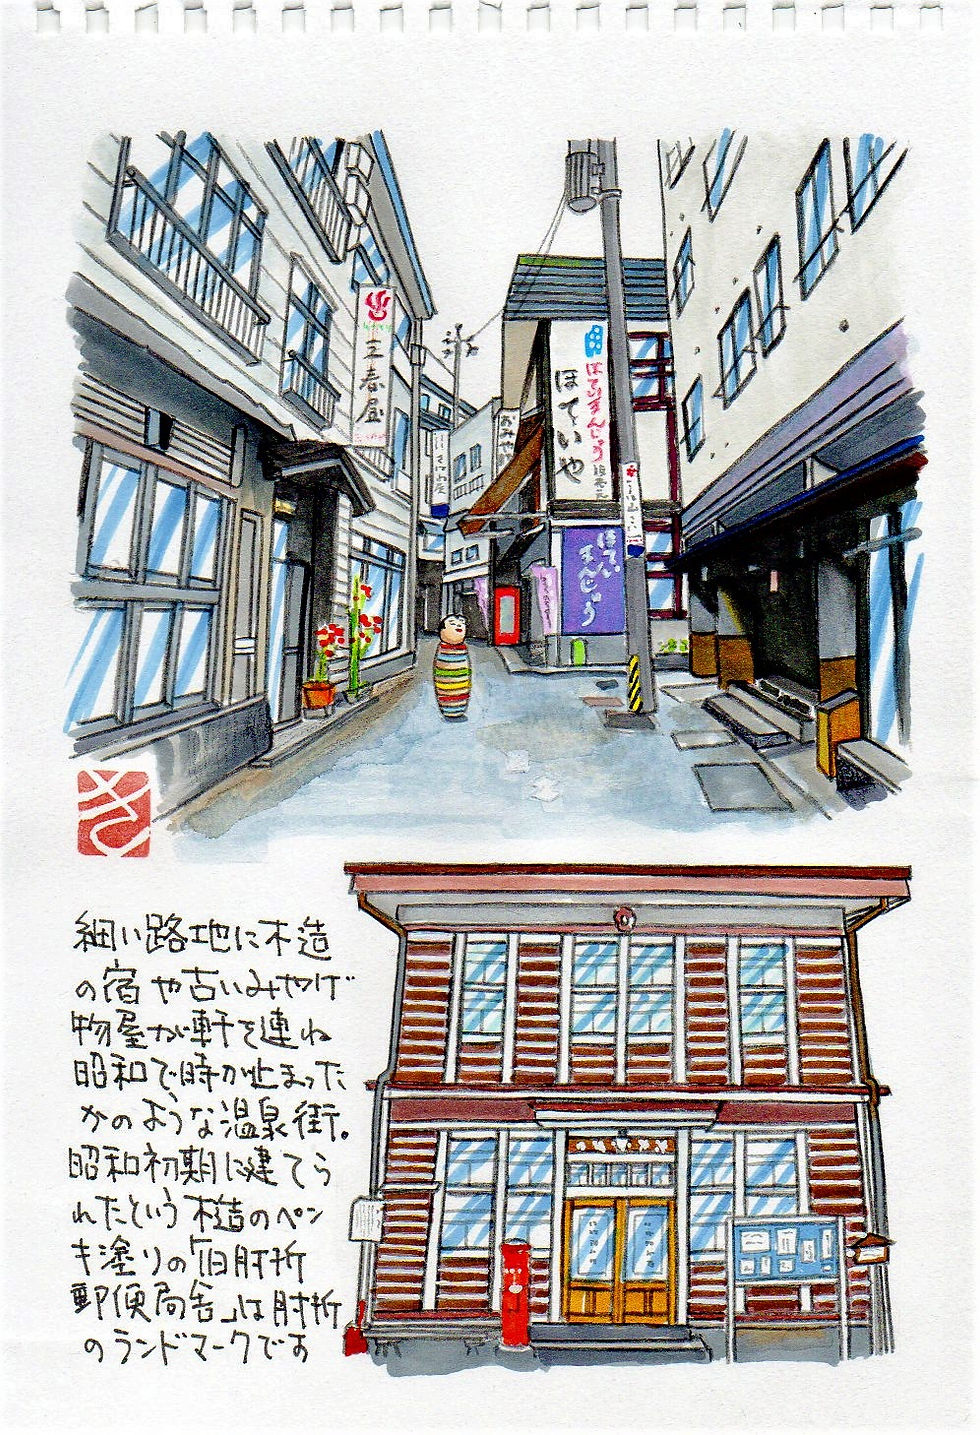 三春屋
おみやげ
ほていまんじゅう
ほていや
ほてい
まんじゅう
細い路地に木造
の宿や古いみやげ
物屋が軒を連ね
昭和で時が止まった
かのような温泉街。
昭和初期に建てら
れたという木造のペン
キ塗りの「旧肘折
郵便局舎」は肘折
のランドマークです